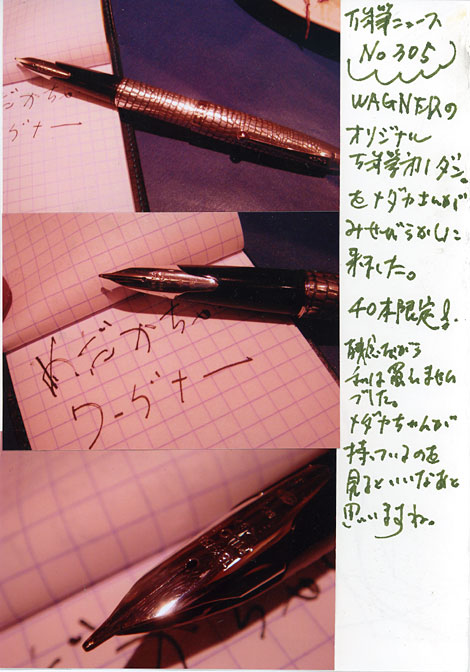 だかち。
グナー
めだかち。
ワーグナー
万年筆ニュース
No 305
WAGNERの
オリジナル
万年筆
をメダカさんが
みせびらかしに
来ました。
40本限定
残念ながら
私は買えません
でした。
メダカちゃんが
持っているのを
見るといいなあと
思いますね。